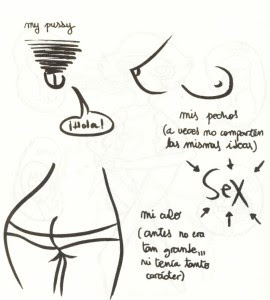 my pussy
¡Hola!
mis pechos
(a veces no comparten
las mismas ideas)
Sex
mi culo
(antes no era
tan grande,,,
ni tenía tanto
carácter)